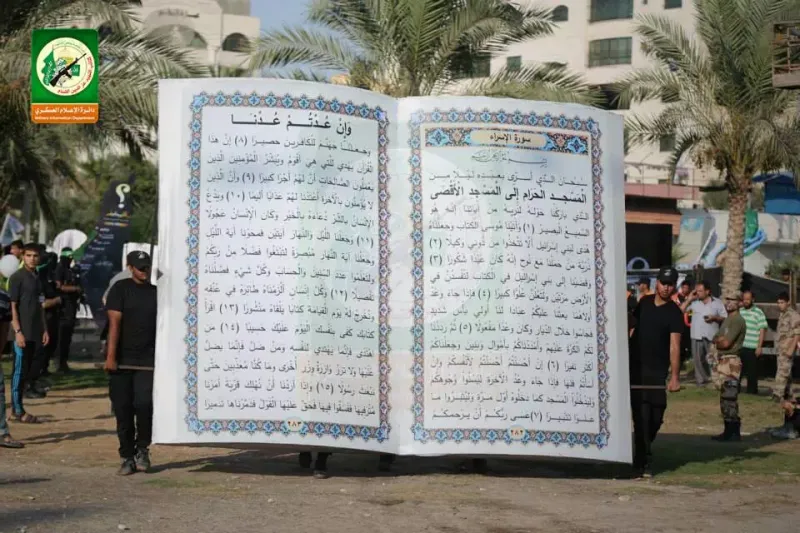 دائرة الإعلام العسكري
Military Information Department
سورة الإسراء
سبحان الذي أسرى بعبده ليلا من
المسجد الحرام إلى المسجد الأقصى
الذي باركنا حوله لنريه من آياتنا إنه هو
السميع البصير (١) وآتينا موسى الكتاب وجعلناه
هدى لبني إسرائيل ألا تتخذوا من دوني وكيلا (٢)
ذرية من حملنا مع نوح إنه كان عبدا شكورا (٣)
وقضينا إلى بني إسرائيل في الكتاب لتفسدن في
الأرض مرتين ولتعلن علوا كبيرا (٤) فإذا جاء وعد
أولاهما بعثنا عليكم عبادا لنا أولي بأس شديد
فجاسوا خلال الديار وكان وعدا مفعولا (٥) ثم رددنا
لكم الكرة عليهم وأمددناكم بأموال وبنين وجعلناكم
أكثر نفيرا (٦) إن أحسنتم أحسنتم لأنفسكم وإن
أسأتم فلها فإذا جاء وعد الآخرة ليسوءوا وجوهكم
وليدخلوا المسجد كما دخلوه أول مرة وليتبروا ما
علوا تتبيرا (٧) عسى ربكم أن يرحمكم
٢٨٢
وإن عدتم عدنا
وجعلنا جهنم للكافرين حصيرا (٨) إن هذا
القرآن يهدي للتي هي أقوم ويبشر المؤمنين الذين
يعملون الصالحات أن لهم أجرا كبيرا (٩) وأن الذين
لا يؤمنون بالآخرة أعتدنا لهم عذابا أليما (١٠) ويدع
الإنسان بالشر دعاءه بالخير وكان الإنسان عجولا
(١١) وجعلنا الليل والنهار آيتين فمحونا آية الليل
وجعلنا آية النهار مبصرة لتبتغوا فضلا من ربكم
ولتعلموا عدد السنين والحساب وكل شيء فصلناه
تفصيلا (١٢) وكل إنسان ألزمناه طائره في عنقه
ونخرج له يوم القيامة كتابا يلقاه منشورا (١٣) اقرأ
كتابك كفى بنفسك اليوم عليك حسيبا (١٤) من
اهتدى فإنما يهتدي لنفسه ومن ضل فإنما يضل
عليها ولا تزر وازرة وزر أخرى وما كنا معذبين حتى
نبعث رسولا (١٥) وإذا أردنا أن نهلك قرية أمرنا
مترفيها ففسقوا فيها فحق عليها القول فدمرناها تدميرا
٢٨٣